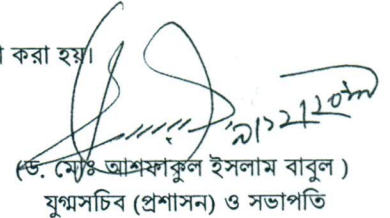 করা হয়।
৯/১২/২০১৮
(ড. মোঃ আশফাকুল ইসলাম বাবুল )
যুগ্মসচিব (প্রশাসন) ও সভাপতি